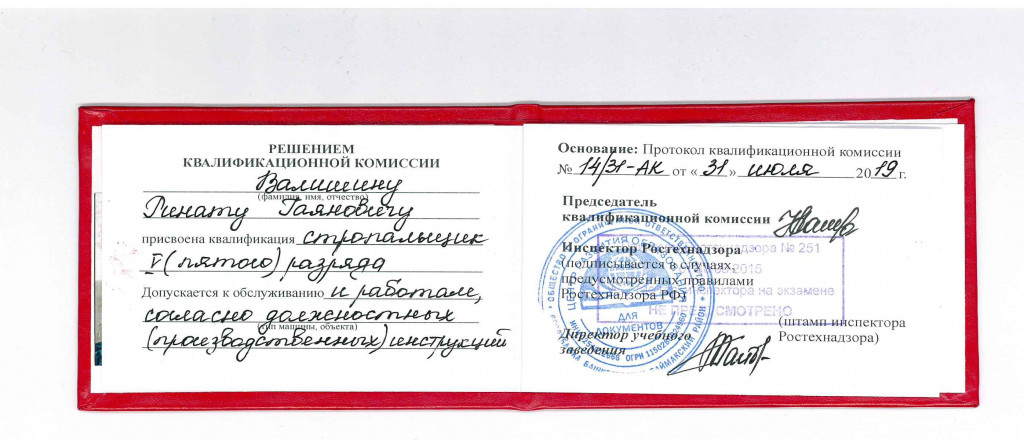 РЕШЕНИЕМ
КВАЛИФИКАЦИОННОЙ КОМИССИИ
Валишину
(фамилия, имя, отчество)
Ринату Гаяновичу
присвоена квалификация стропальщик
V (пятого) разряда
Допускается к обслуживанию и работам,
согласно должностных
(тип машины, объекта)
(производственных) инструкций
Основание: Протокол квалификационной комиссии
№ 14/31-АК от « 31 » июля 2019 г.
Председатель
квалификационной комиссии
Инспектор Ростехнадзора
(подписывается в случаях,
предусмотренных правилами
Ростехнадзора РФ)
(штамп инспектора
Ростехнадзора)
Директор учебного
заведения
№ 251
2015
на экзамене
НЕ СМОТРЕНО
ОБЩЕСТВО С ОГРАНИЧЕННОЙ ОТВЕТСТВЕННОСТЬЮ
ДЛЯ
ДОКУМЕНТОВ